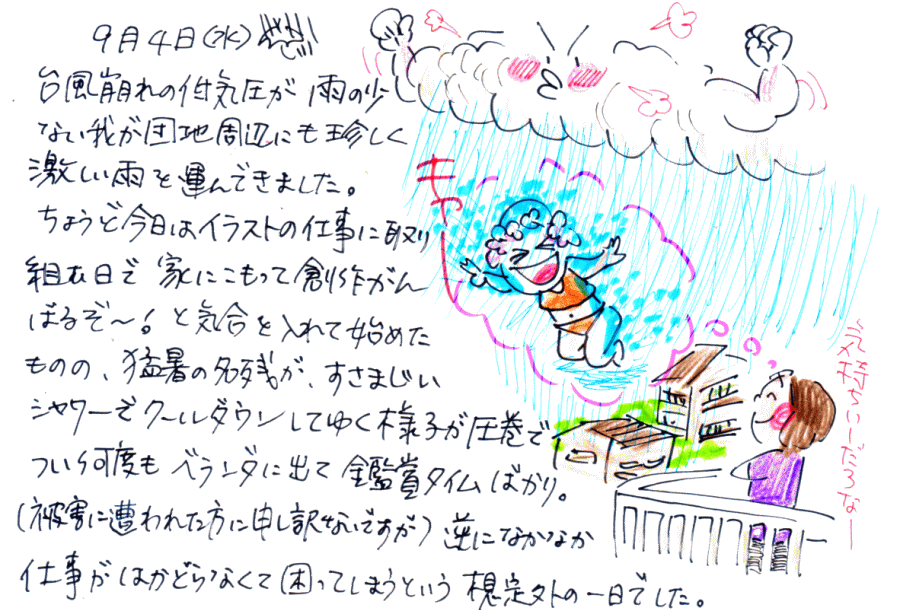 9月4日(水)
台風崩れの低気圧が 雨の少
ない我が団地周辺にも珍しく
激しい雨を運んできました。
ちょうど今日はイラストの仕事に取り
組む日で 家にこもって創作がん
ばるぞ〜! と気合を入れて始めた
ものの、猛暑の名残が、すさまじい
シャワーでクールダウンしてゆく様子が圧巻で
つい何度も ベランダに出て 鑑賞タイムばかり。
(被害に遭われた方に申し訳ないですが) 逆になかなか
仕事がはかどらなくて困ってしまうという 想定外の一日でした。
キャー
気持ちいーだろなー